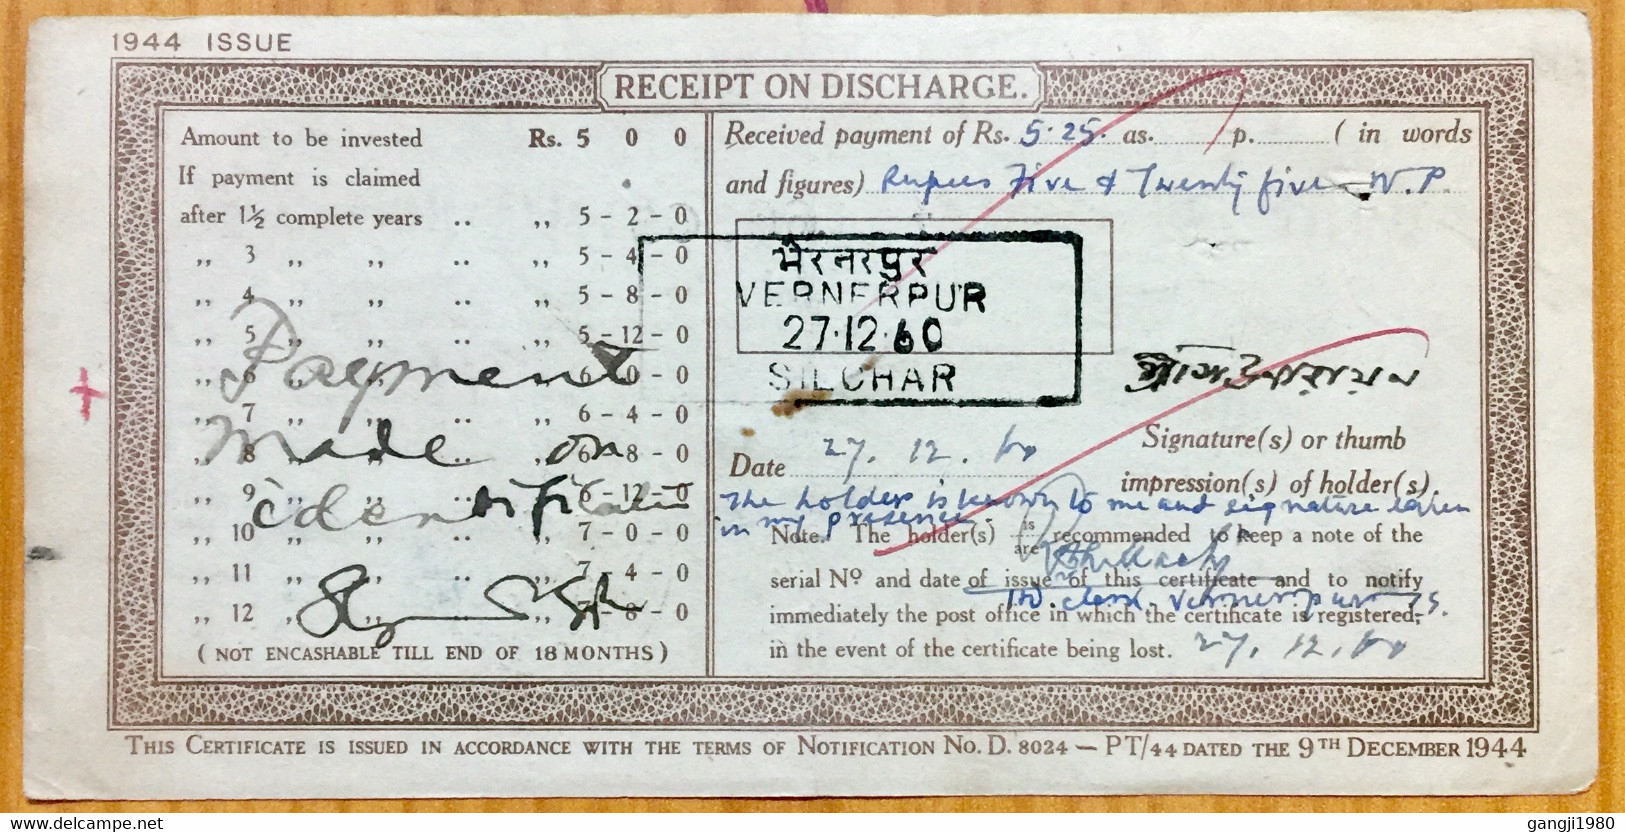 1944 ISSUE
RECEIPT ON DISCHARGE.
Amount to be invested Rs. 5 0 0
If payment is claimed
after 1½ complete years .. ,, 5 - 2 - 0
,, 3 ,, ,, .. ,, 5 - 4 - 0
,, 4 ,, ,, .. ,, 5 - 8 - 0
,, 5 ,, ,, .. ,, 5 - 12 - 0
,, 6 ,, ,, .. ,, 6 - 0 - 0
,, 7 ,, ,, .. ,, 6 - 4 - 0
,, 8 ,, ,, .. ,, 6 - 8 - 0
,, 9 ,, ,, .. ,, 6 - 12 - 0
,, 10 ,, ,, .. ,, 7 - 0 - 0
,, 11 ,, ,, .. ,, 7 - 4 - 0
,, 12 ,, ,, .. ,, 7 - 8 - 0
(NOT ENCASHABLE TILL END OF 18 MONTHS)
Payment
made on
identification
Received payment of Rs. 5.25. as. p. (in words
and figures) Rupees Five & Twenty five N.P.
भैरनरपुर
VERNERPUR
27.12.60
SILCHAR
Signature(s) or thumb
impression(s) of holder(s)
Date 27.12.60
The holder is known to me and signature taken
in my presence.
Note. The holder(s) is/are recommended to keep a note of the
serial Nº and date of issue of this certificate and to notify
immediately the post office in which the certificate is registered,
in the event of the certificate being lost.
clerk, Vernerpur
27.12.60
THIS CERTIFICATE IS ISSUED IN ACCORDANCE WITH THE TERMS OF NOTIFICATION NO. D. 8024 — PT/44 DATED THE 9TH DECEMBER 1944
gangji1980
www.delcampe.net